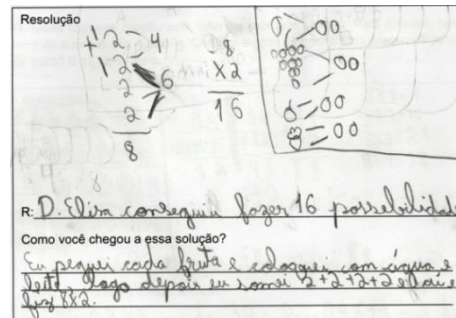 Resolução
+ 1 2 4
1 2
2 6
2
8
8
X2
16
R: D. Elisa conseguiu fazer 16 possebilidad
Como você chegou a essa solução?
Eu peguei cada fruta e coloquei com água e
leite. Logo depois eu somei 2+2+2+2 e dai e
fiz 8x2.